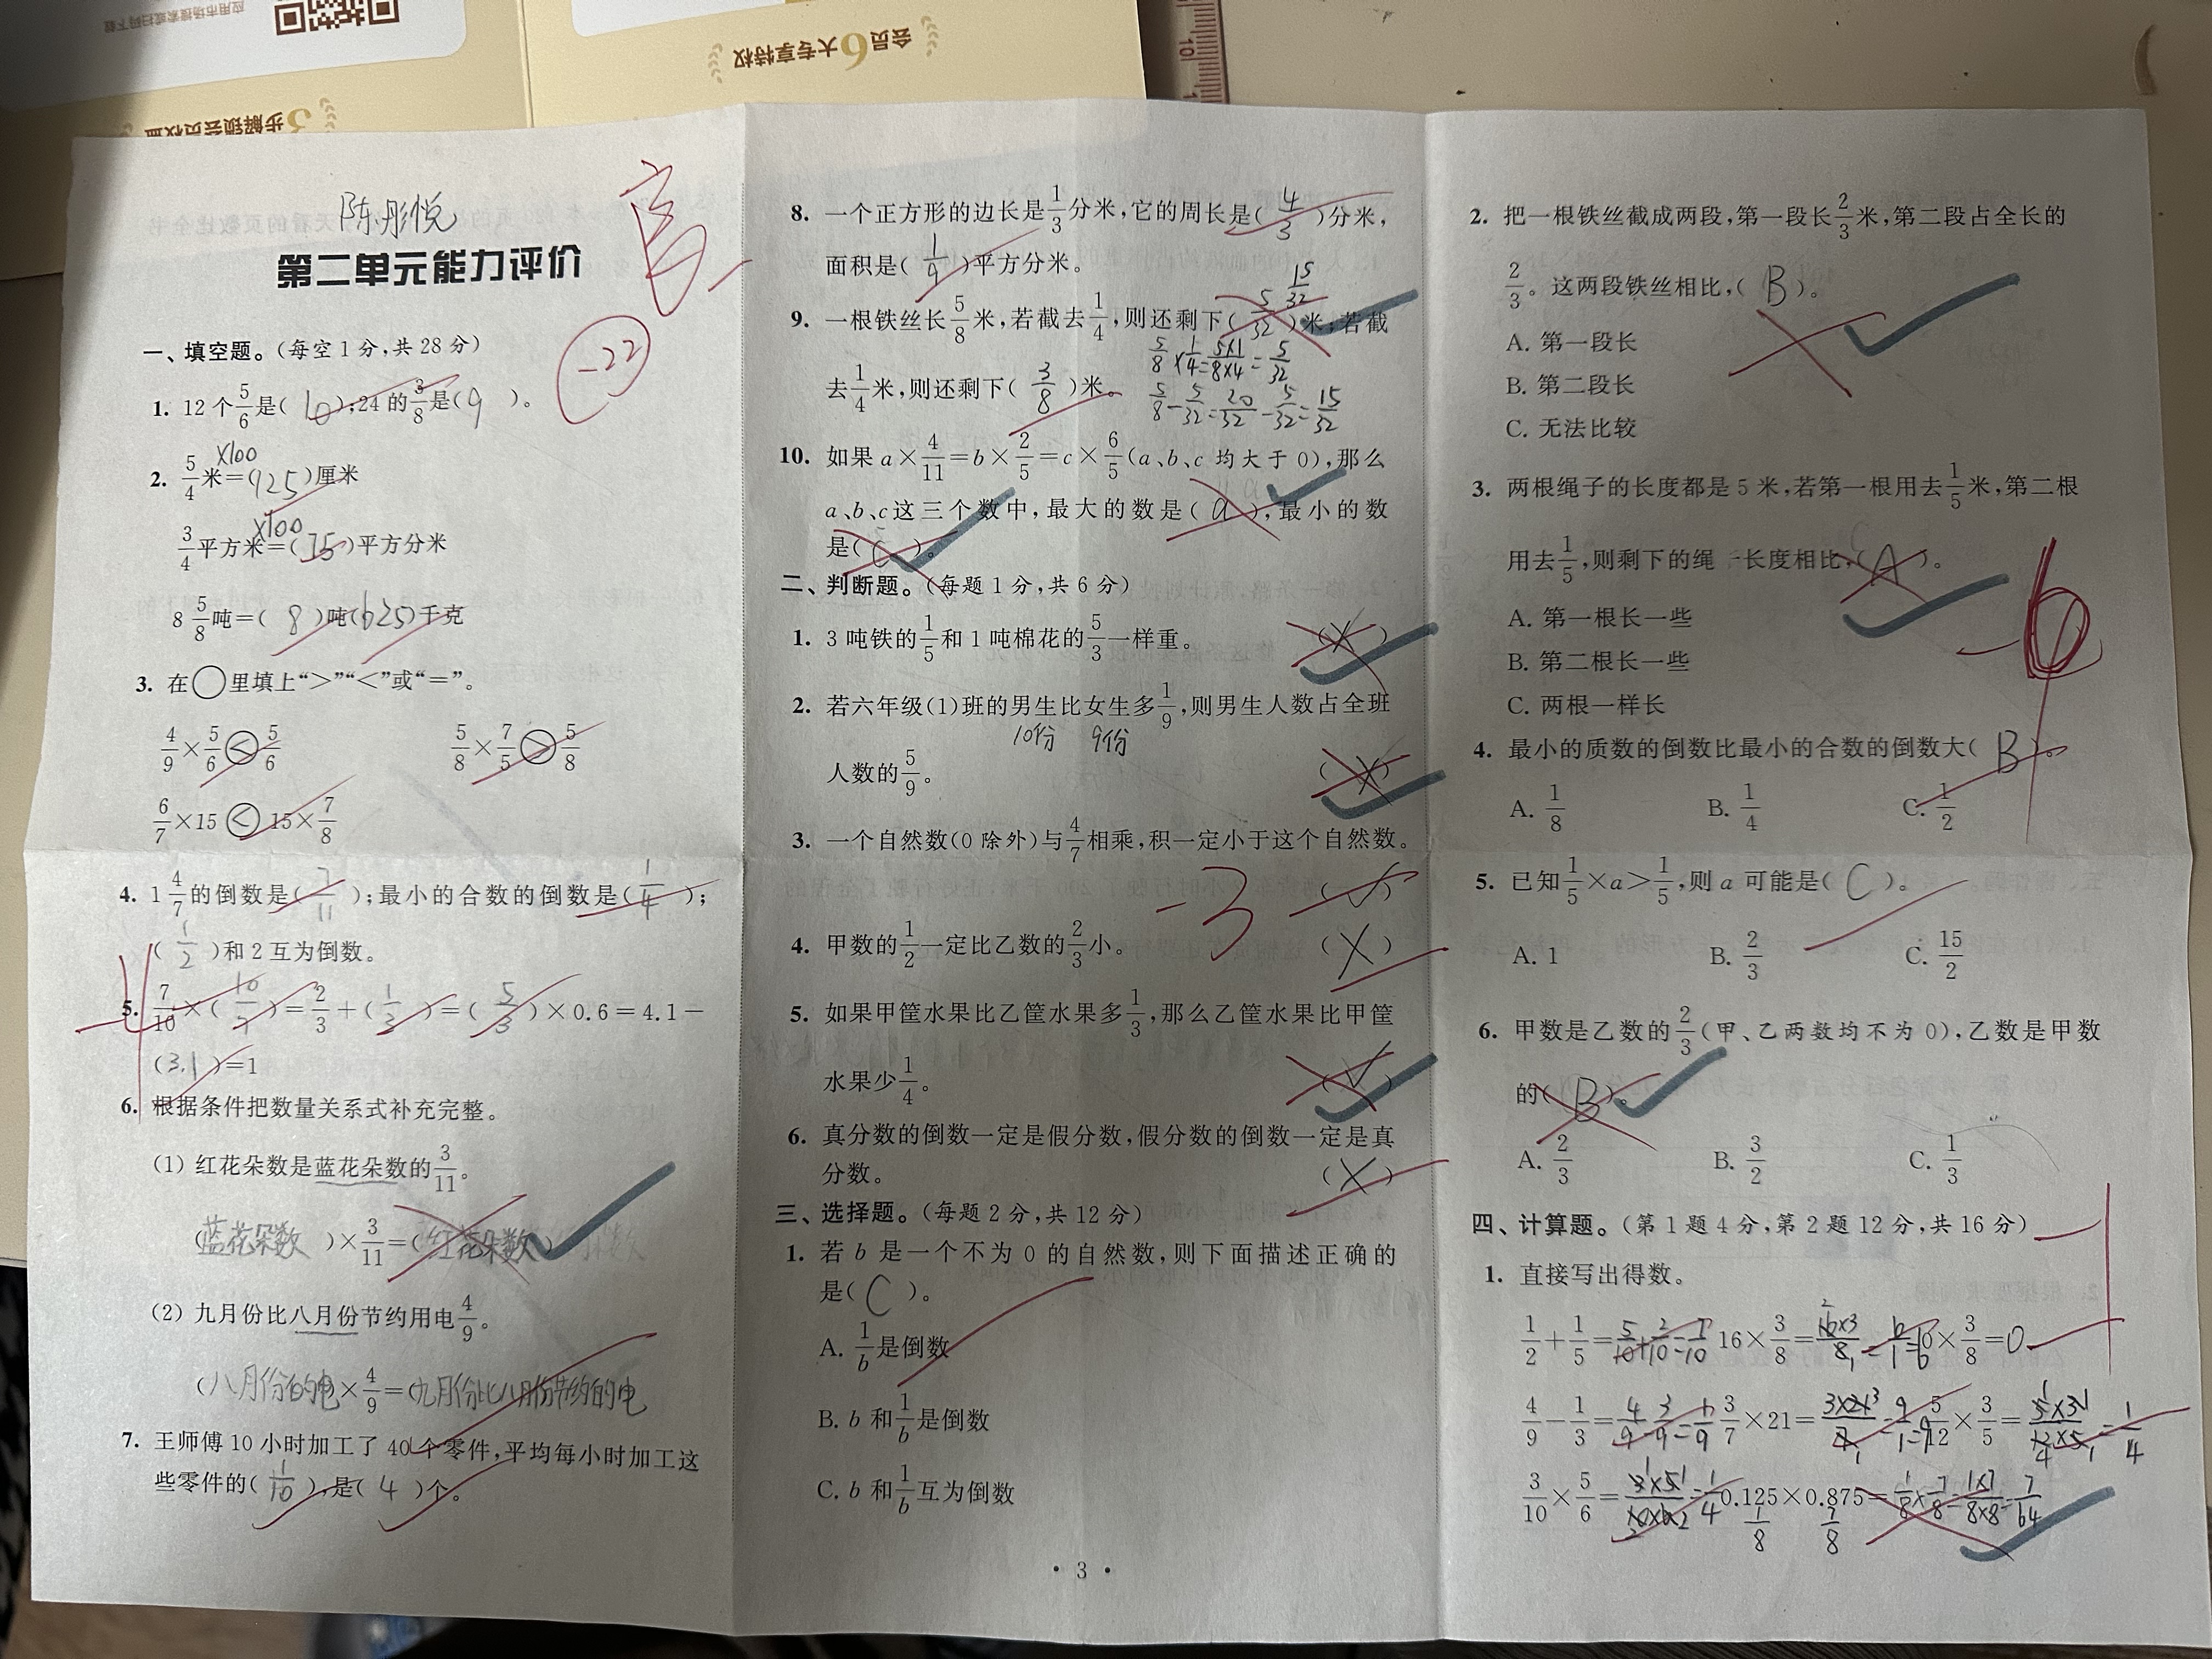 应用市场搜索或扫码下载
会员6大专享特权
3步解锁会员权益
10
陈彤悦
第二单元能力评价
-22
一、填空题。(每空1分,共28分)
1. 12个5/6是(10);24的3/8是(9)。
×100
2. 5/4米=(125)厘米
×100
3/4平方米=(75)平方分米
8 5/8吨=(8)吨(625)千克
3. 在○里填上“>”“<”或“=”。
4/9×5/6<5/6 5/8×7/5>5/8
6/7×15<15×7/8
4. 1 4/7的倒数是(7/11);最小的合数的倒数是(1/4);
(1/2)和2互为倒数。
5. 7/10×(10/7)=2/3+(1/3)=(5/3)×0.6=4.1-
(3.1)=1
6. 根据条件把数量关系式补充完整。
(1) 红花朵数是蓝花朵数的3/11。
(蓝花朵数)×3/11=(红花朵数)
(2) 九月份比八月份节约用电4/9。
(八月份的电)×4/9=(九月份比八月份节约的电
7. 王师傅10小时加工了40个零件,平均每小时加工这
些零件的(1/10),是(4)个。
8. 一个正方形的边长是1/3分米,它的周长是(4/3)分米,
面积是(1/9)平方分米。
15/32
9. 一根铁丝长5/8米,若截去1/4,则还剩下(5/32)米;若截
5/8×1/4=5×1/8×4=5/32
去1/4米,则还剩下(3/8)米。
5/8-5/32=20/32-5/32=15/32
10. 如果a×4/11=b×2/5=c×6/5(a、b、c均大于0),那么
a、b、c这三个数中,最大的数是(a),最小的数
是(c)。
二、判断题。(每题1分,共6分)
1. 3吨铁的1/5和1吨棉花的5/3一样重。 (×)
2. 若六年级(1)班的男生比女生多1/9,则男生人数占全班
10份 9份
人数的5/9。 (×)
3. 一个自然数(0除外)与4/7相乘,积一定小于这个自然数。
(√)
-3
4. 甲数的1/2一定比乙数的2/3小。 (×)
5. 如果甲筐水果比乙筐水果多1/3,那么乙筐水果比甲筐
水果少1/4。 (√)
6. 真分数的倒数一定是假分数,假分数的倒数一定是真
分数。 (×)
三、选择题。(每题2分,共12分)
1. 若b是一个不为0的自然数,则下面描述正确的
是(C)。
A. 1/b是倒数
B. b和1/b是倒数
C. b和1/b互为倒数
· 3 ·
2. 把一根铁丝截成两段,第一段长2/3米,第二段占全长的
2/3。这两段铁丝相比,(B)。
A. 第一段长
B. 第二段长
C. 无法比较
3. 两根绳子的长度都是5米,若第一根用去1/5米,第二根
用去1/5,则剩下的绳 长度相比,(A)。
A. 第一根长一些
B. 第二根长一些
C. 两根一样长
-6
4. 最小的质数的倒数比最小的合数的倒数大(B)。
A. 1/8 B. 1/4 C. 1/2
5. 已知1/5×a>1/5,则a可能是(C)。
A. 1 B. 2/3 C. 15/2
6. 甲数是乙数的2/3(甲、乙两数均不为0),乙数是甲数
的(B)。
A. 2/3 B. 3/2 C. 1/3
四、计算题。(第1题4分,第2题12分,共16分)
-1
1. 直接写出得数。
1/2+1/5=5/10+2/10=7/10 16×3/8=16×3/8=6/1=6 0×3/8=0
4/9-1/3=4/9-3/9=1/9 3/7×21=3×21/7=9/1=9 5/12×3/5=5×3/12×5=1/4
3/10×5/6=3×5/10×6=1/4 0.125×0.875=1/8×7/8=1×7/8×8=7/64
1/8 7/8